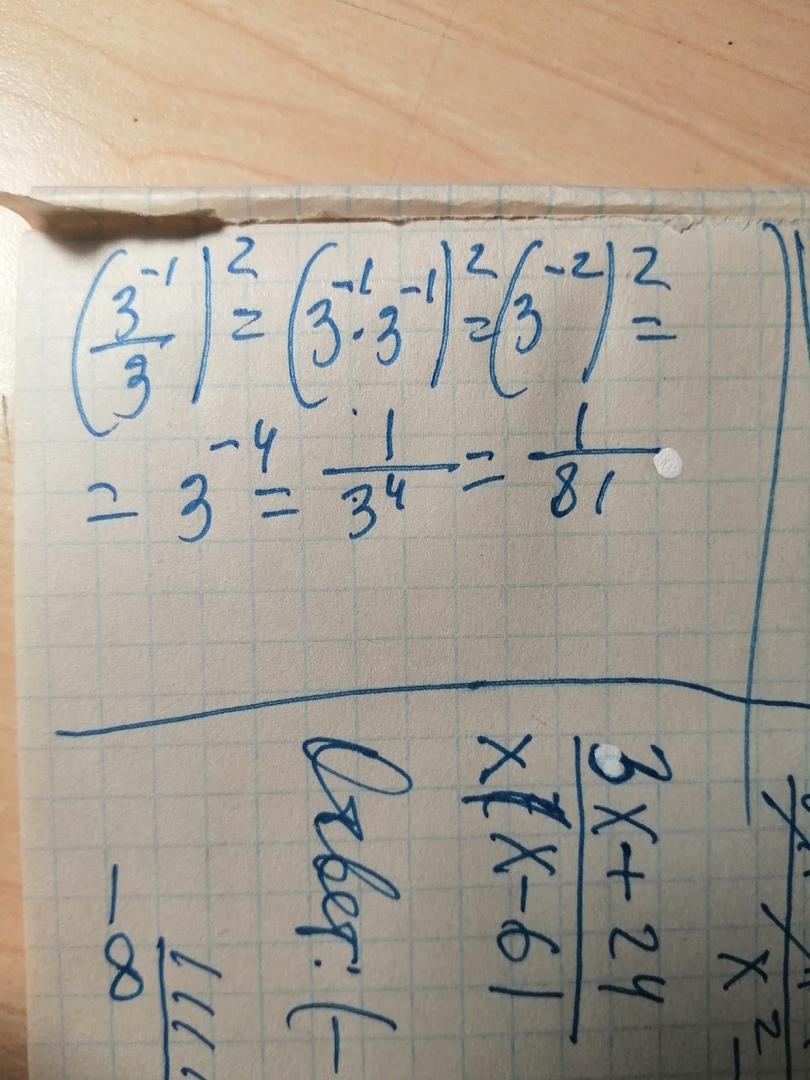 (3^-1/3)^2 = (3^-1 · 3^-1)^2 = (3^-2)^2 =
= 3^-4 = 1/3^4 = 1/81
3x+24
x(x-6)
Ответ: (-
-8